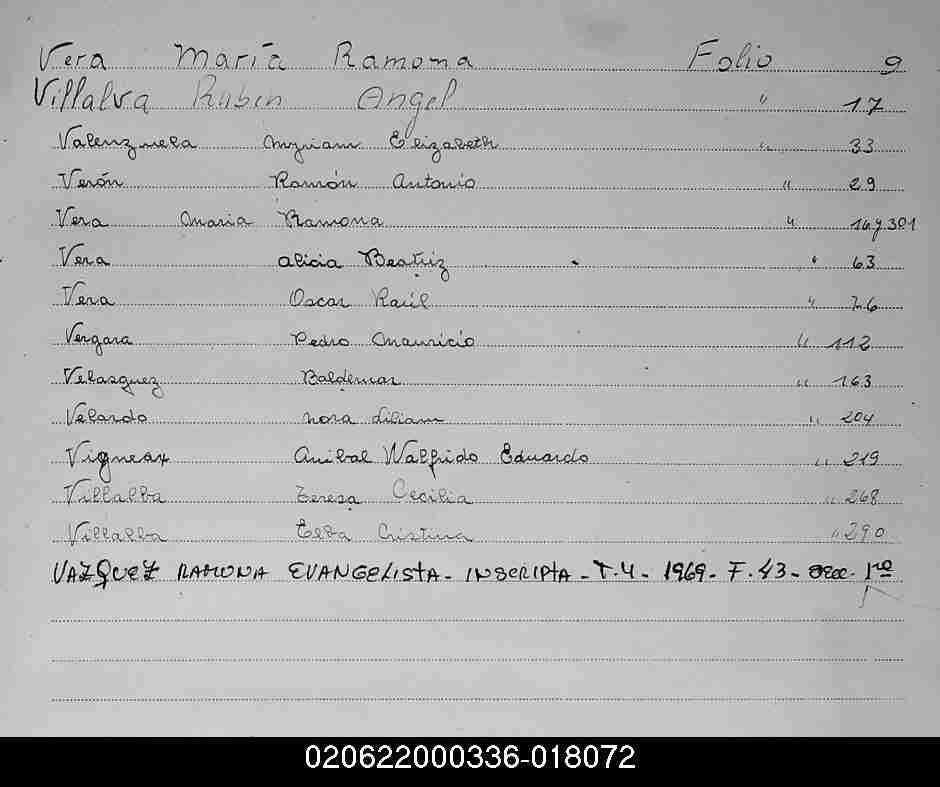 Vera María Ramona Folio 9
Villalva Rubén Angel " 17
Valenzuela Myriam Elizabeth " 33
Verón Ramón Antonio " 29
Vera Maria Ramona " 16 y 301
Vera Alicia Beatriz " 63
Vera Oscar Raúl " 76
Vergara Pedro Mauricio " 112
Velasquez Baldemar " 163
Velardo Nora Liliam " 204
Vigneax Anibal Walfrido Eduardo " 219
Villalba Teresa Cecilia " 268
Villalba Elba Cristina " 290
VAZQUEZ RAMONA EVANGELISTA - INSCRIPTA - T.4 - 1969 - F.43 - 1ro
020622000336-018072